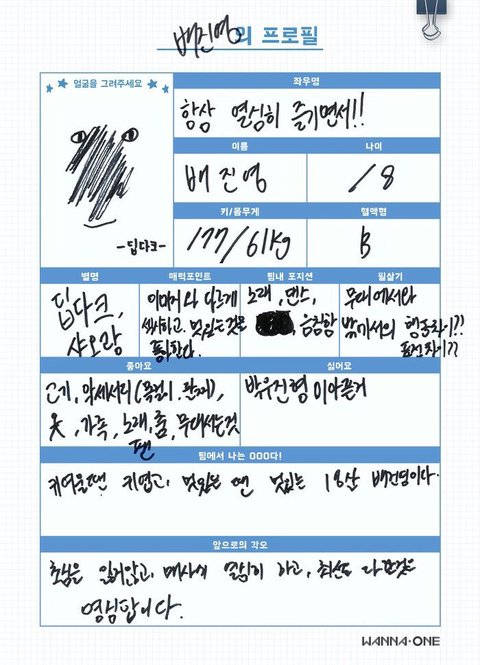 배진영의 프로필
얼굴을 그려주세요
-딥다크-
좌우명
항상 열심히 즐기면서!!
이름
나이
배진영
18
키/몸무게
혈액형
177/61kg
B
별명
매력포인트
팀내 포지션
필살기
딥다크,
샤오랑
이미지와 다르게
섹시하고, 멋있는것을
좋아한다.
노래, 댄스,
음침함
무대에서와
밖에서의 행동차이??
표정차이??
좋아요
싫어요
고기, 악세서리(목걸이, 반지),
옷, 가족, 노래, 춤, 무대서는것
팬
박우진형이 아픈거
팀에서 나는 OOO다!
귀여울땐 귀엽고, 멋있을 땐 멋있는 18살 배진영이다.
앞으로의 각오
초심을 잃지않고, 매사에 열심히 하고, 최선을
WANNA·ONE